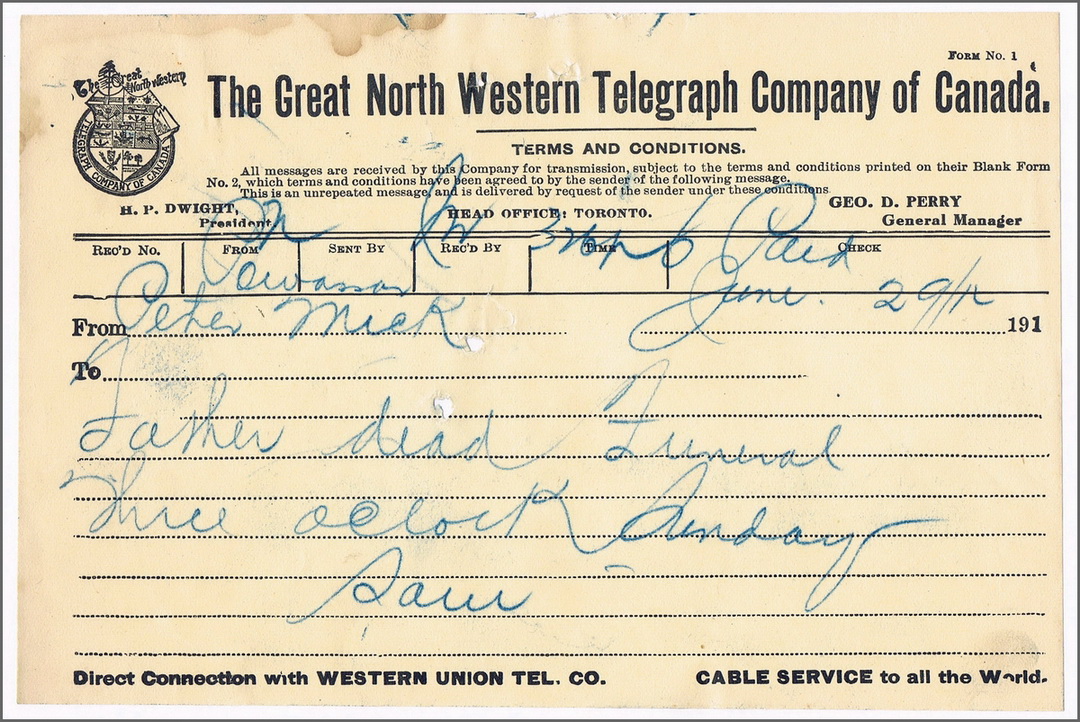 Form No. 1
The Great North Western
TELEGRAPH COMPANY OF CANADA
The Great North Western Telegraph Company of Canada.
TERMS AND CONDITIONS.
All messages are received by this Company for transmission, subject to the terms and conditions printed on their Blank Form
No. 2, which terms and conditions have been agreed to by the sender of the following message.
This is an unrepeated message, and is delivered by request of the sender under these conditions
H. P. DWIGHT,
President
HEAD OFFICE: TORONTO.
GEO. D. PERRY
General Manager
REC'D NO. FROM SENT BY REC'D BY TIME CHECK
6 Paid
Powassan
June. 29/12
From Peter Mick 191
To
Father dead Funeral
Three oclock Sunday
Sam
Direct Connection with WESTERN UNION TEL. CO. CABLE SERVICE to all the World.